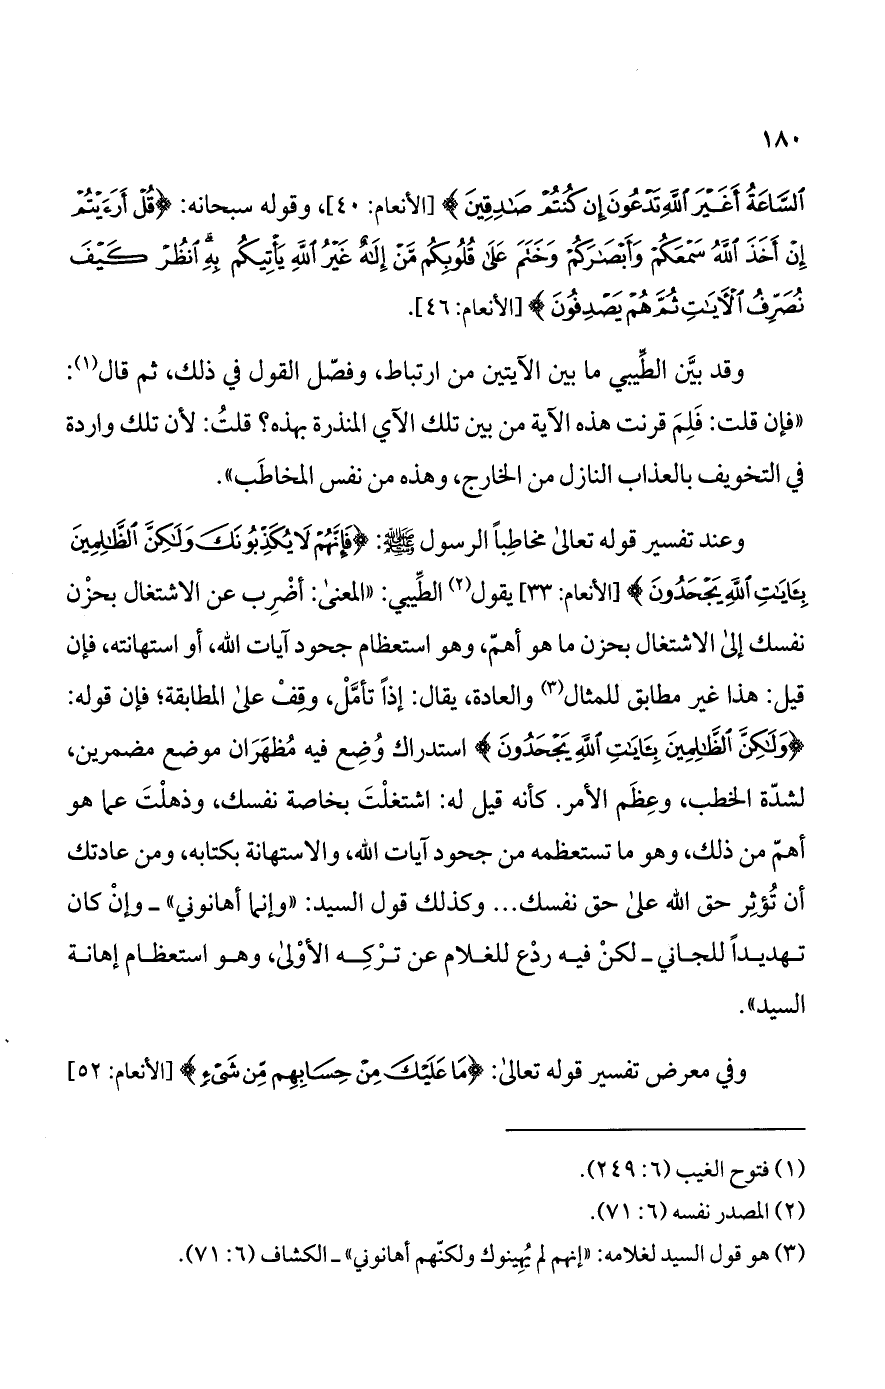 ١٨٠
ٱلسَّاعَةُ أَغَيْرَ ٱللَّهِ تَدْعُونَ إِن كُنتُمْ صَٰدِقِينَ ﴾ [الأنعام: ٤٠]، وقوله سبحانه: ﴿قُلْ أَرَءَيْتُمْ
إِنْ أَخَذَ ٱللَّهُ سَمْعَكُمْ وَأَبْصَٰرَكُمْ وَخَتَمَ عَلَىٰ قُلُوبِكُم مَّنْ إِلَٰهٌ غَيْرُ ٱللَّهِ يَأْتِيكُم بِهِ ۗ ٱنظُرْ كَيْفَ
نُصَرِّفُ ٱلْـَٔايَٰتِ ثُمَّ هُمْ يَصْدِفُونَ ﴾ [الأنعام: ٤٦].
وقد بيَّن الطِّيبي ما بين الآيتين من ارتباط، وفصّل القول في ذلك، ثم قال(١):
«فإن قلت: فَلِمَ قرنت هذه الآية من بين تلك الآي المنذرة بهذه؟ قلتُ: لأن تلك واردة
في التخويف بالعذاب النازل من الخارج، وهذه من نفس المخاطَب».
وعند تفسير قوله تعالىٰ مخاطِباً الرسول ﷺ: ﴿فَإِنَّهُمْ لَا يُكَذِّبُونَكَ وَلَٰكِنَّ ٱلظَّٰلِمِينَ
بِـَٔايَٰتِ ٱللَّهِ يَجْحَدُونَ ﴾ [الأنعام: ٣٣] يقول(٢) الطِّيبي: «المعنىٰ: أضْرِب عن الاشتغال بحزْن
نفسك إلىٰ الاشتغال بحزن ما هو أهمّ، وهو استعظام جحود آيات الله، أو استهانته، فإن
قيل: هذا غير مطابق للمثال(٣) والعادة، يقال: إذاً تأمَّلْ، وقِفْ علىٰ المطابقة؛ فإن قوله:
﴿وَلَٰكِنَّ ٱلظَّٰلِمِينَ بِـَٔايَٰتِ ٱللَّهِ يَجْحَدُونَ ﴾ استدراك وُضِع فيه مُظهَرَان موضع مضمرين،
لشدّة الخطب، وعِظَم الأمر. كأنه قيل له: اشتغلْتَ بخاصة نفسك، وذهلْتَ عما هو
أهمّ من ذلك، وهو ما تستعظمه من جحود آيات الله، والاستهانة بكتابه، ومن عادتك
أن تُؤثِر حق الله علىٰ حق نفسك... وكذلك قول السيد: «وإنما أهانوني» ـ وإنْ كان
تهديداً للجاني ـ لكنْ فيه ردْع للغلام عن ترْكِه الأوْلىٰ، وهو استعظام إهانة
السيد».
وفي معرض تفسير قوله تعالىٰ: ﴿مَا عَلَيْكَ مِنْ حِسَابِهِم مِّن شَىْءٍ ﴾ [الأنعام: ٥٢]
(١) فتوح الغيب (٦: ٢٤٩).
(٢) المصدر نفسه (٦: ٧١).
(٣) هو قول السيد لغلامه: «إنهم لم يُهِينوك ولكنّهم أهانوني» ـ الكشاف (٦: ٧١).